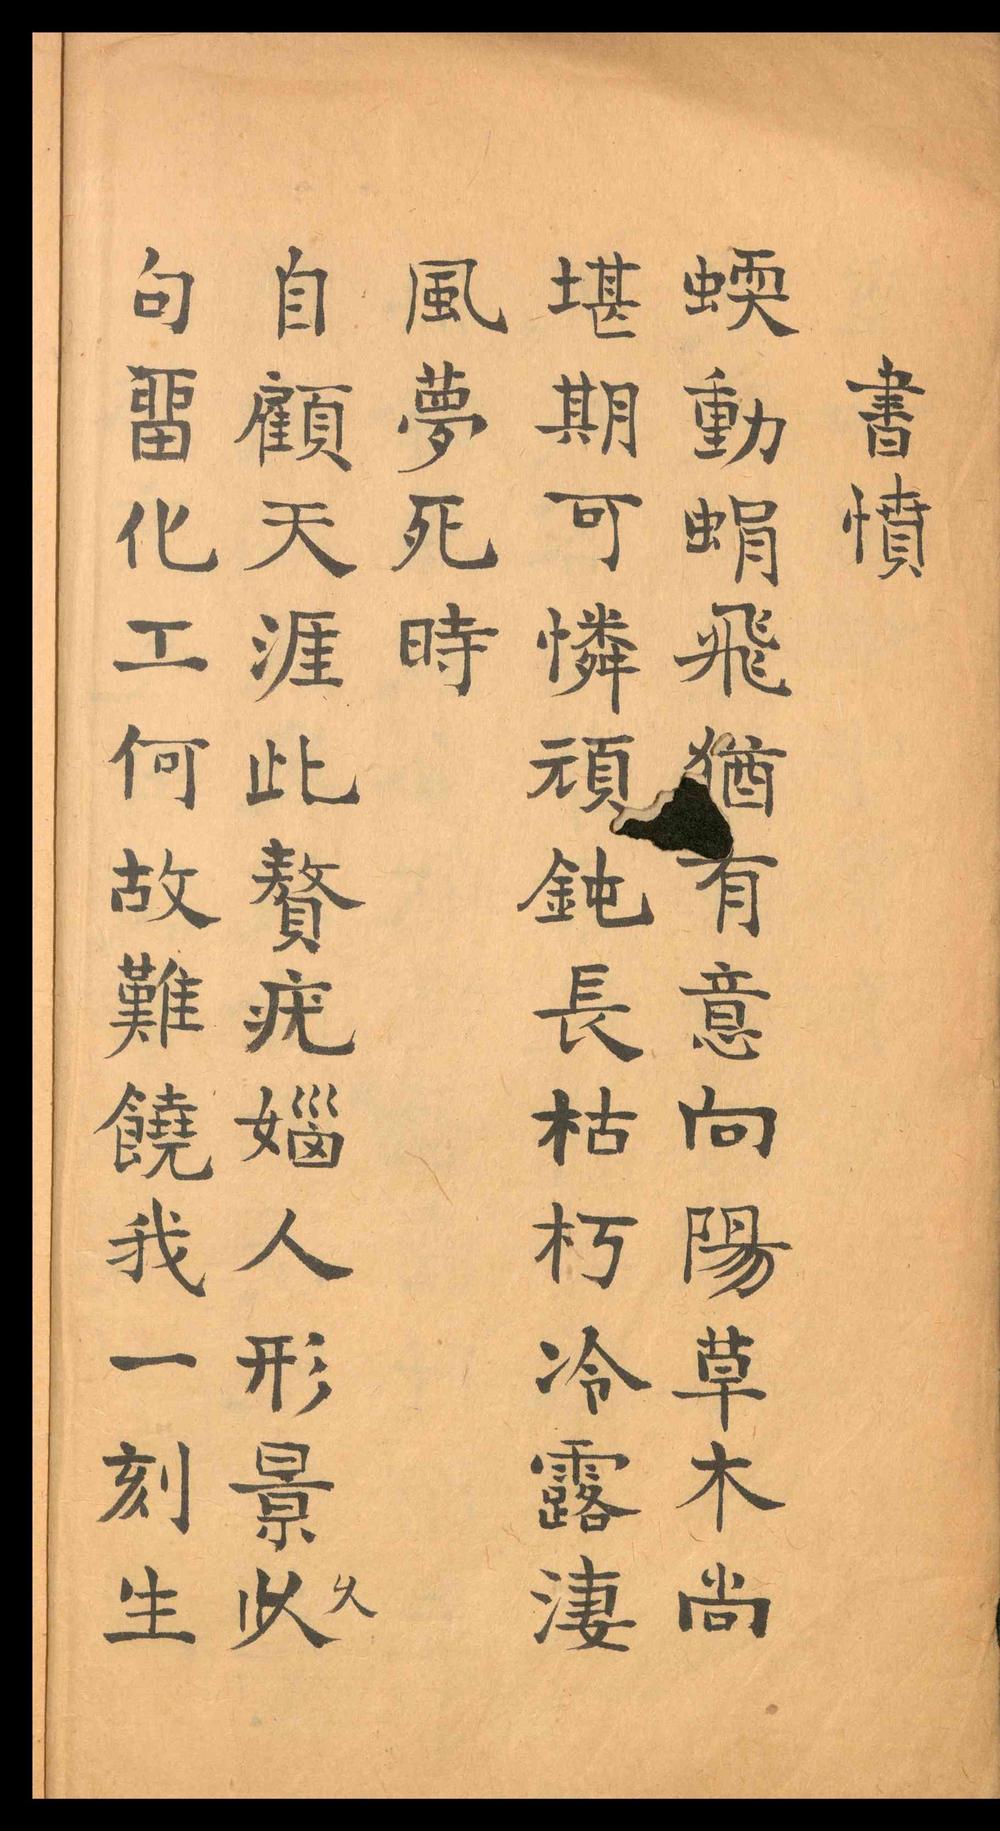 書憤
蝡動蜎飛猶有意向陽草木尚
堪期可憐頑鈍長枯朽冷露淒
風夢死時
自顧天涯此贅疣㛴人形景久
句畱化工何故難饒我一刻生